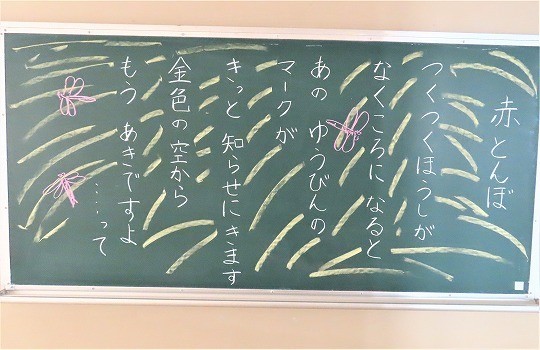 赤とんぼ
つくつくほうしが
なくころに なると
あの ゆうびんの
マークが
きっと 知らせにきます
金色の空から
もう あきですよ
……って